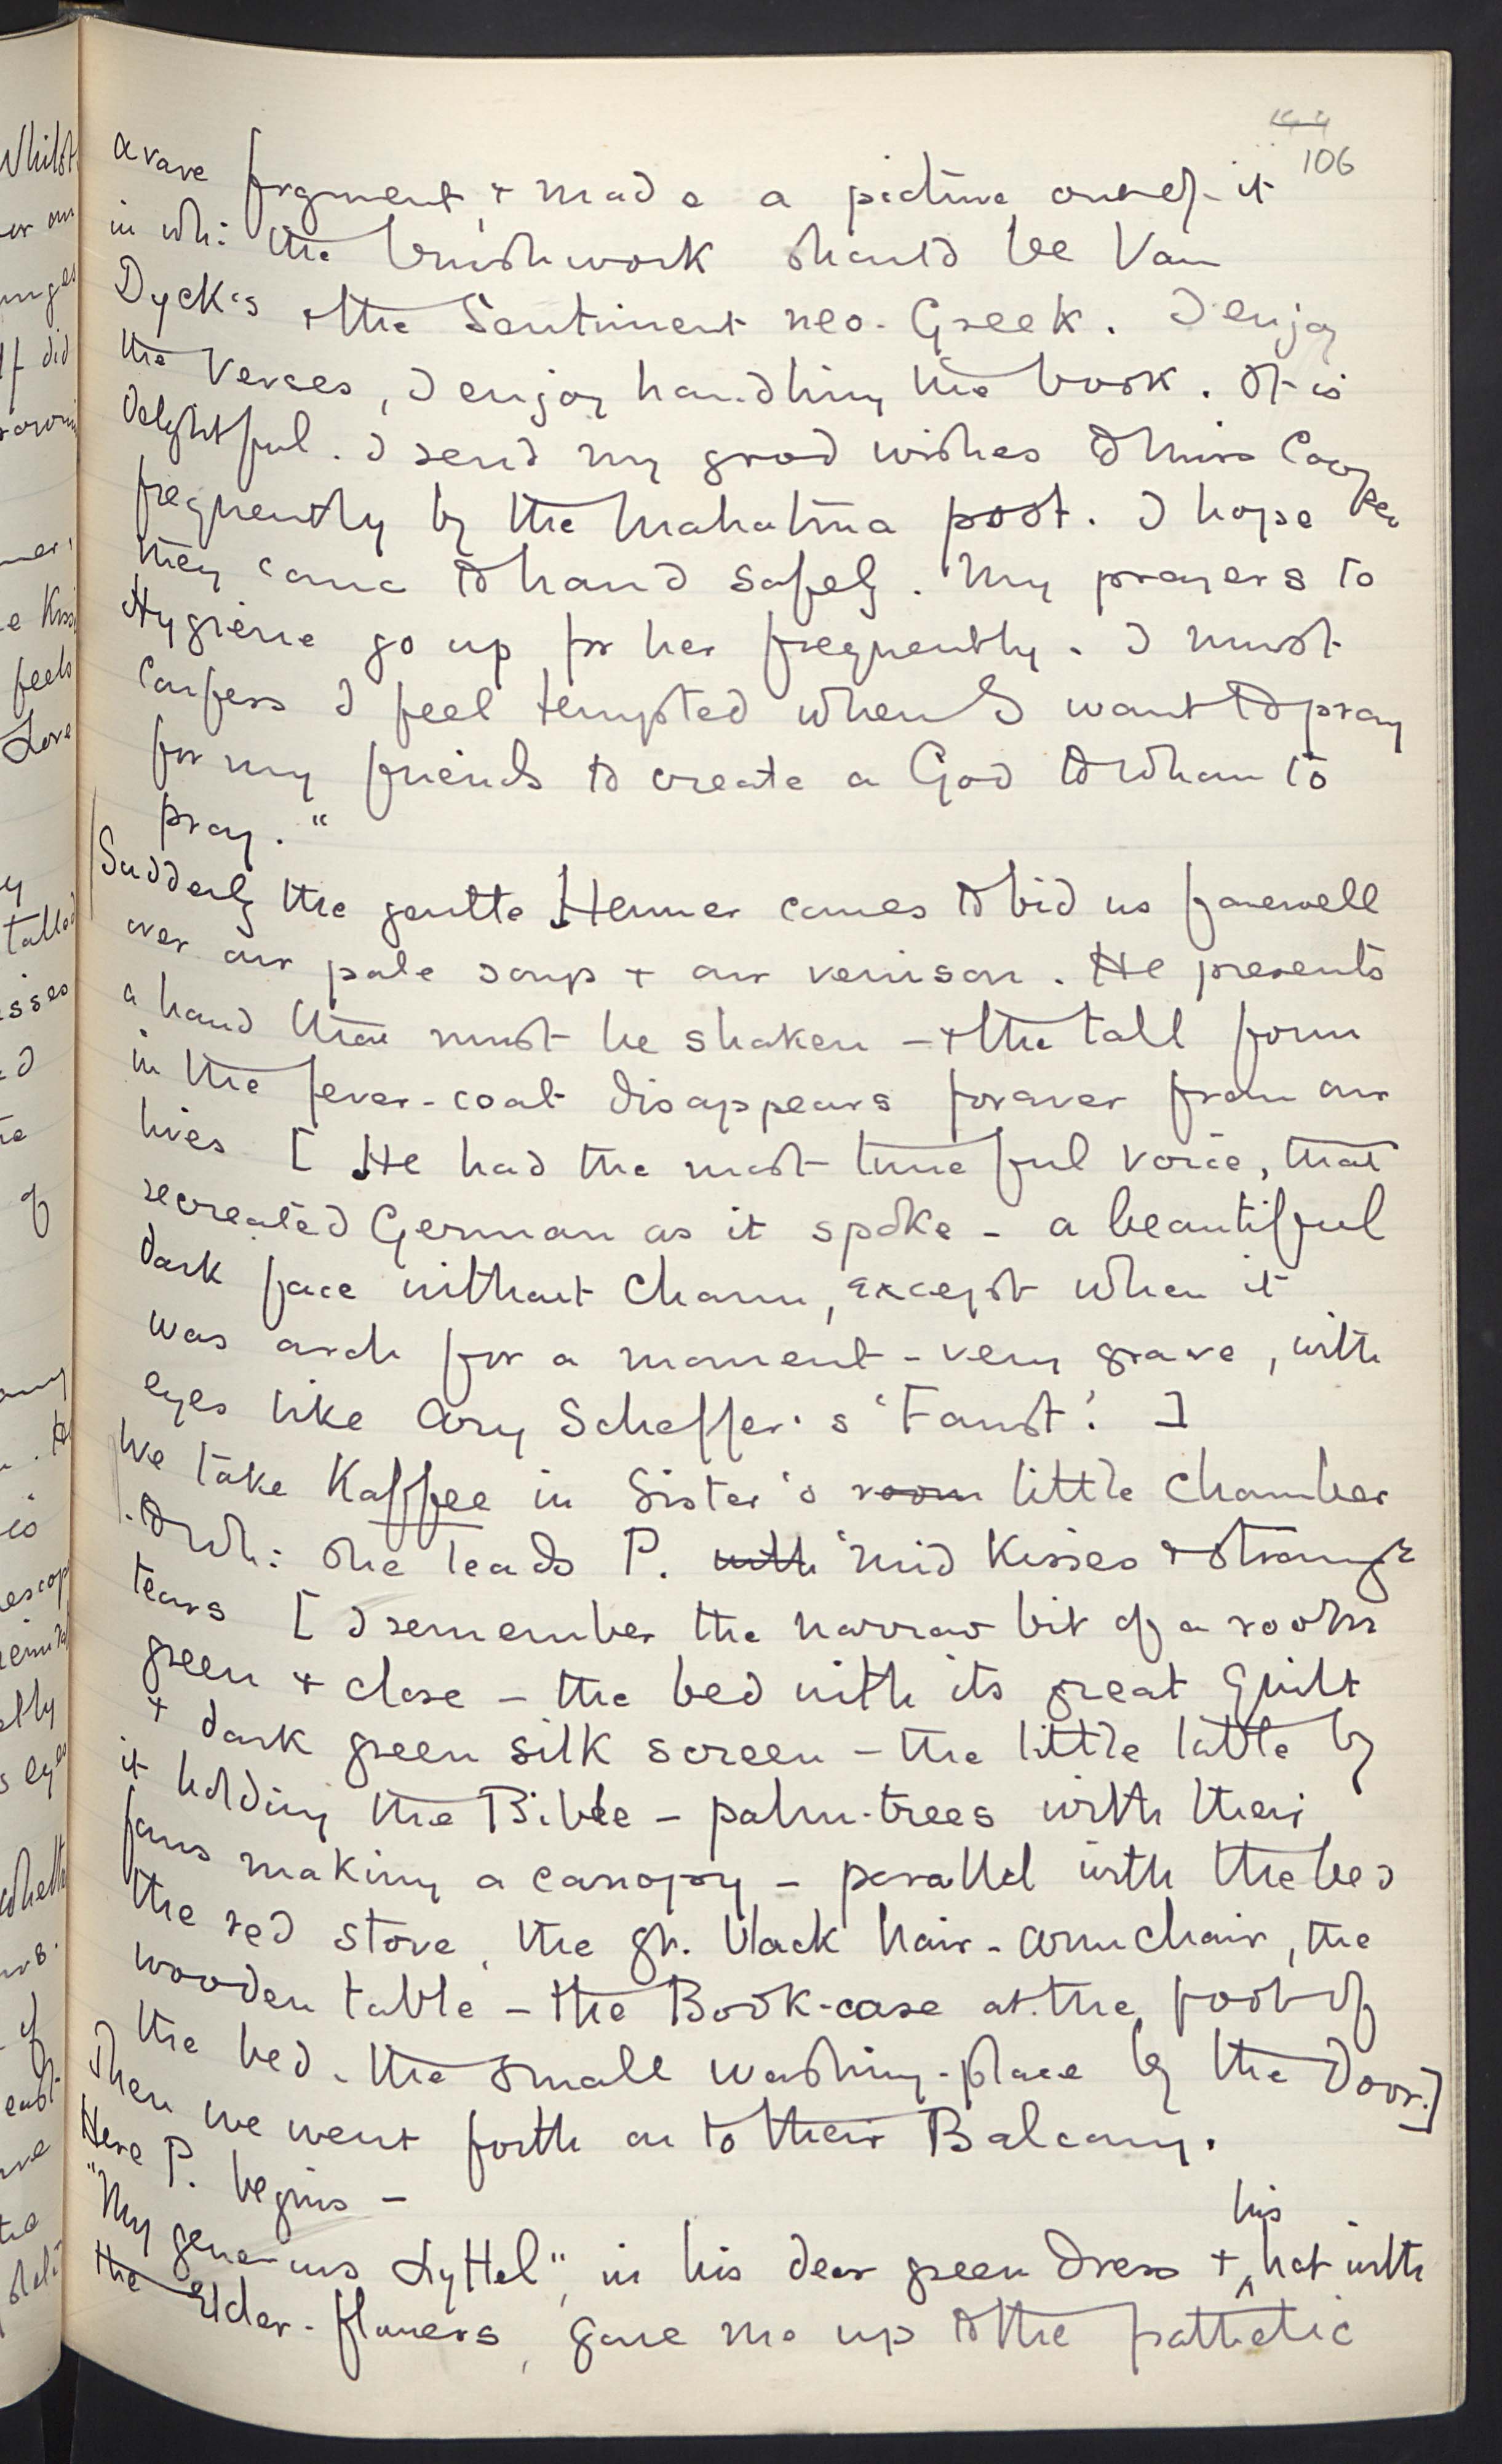 106
a rare fragment, + made a picture out of it
in wh: the brushwork should be Van
Dyck's + the Sentiment neo-Greek. I enjoy
the Verses, I enjoy handling the book. It is
delightful. I send my good wishes to Miss Cooper
frequently by the Mahatma post. I hope
they come to hand safely. My prayers to
Hygiene go up for her frequently. I must
confess I feel tempted when I want to pray
for my friends to create a God to whom to
pray."
Suddenly the gentle Henner comes to bid us farewell
over our pale soup + our venison. He presents
a hand that must be shaken – + the tall form
in the fever-coat disappears forever from our
lives [He had the most tuneful voice, that
recreated German as it spoke – a beautiful
dark face without charm, except when it
was arch for a moment – very grave, with
eyes like Ary Scheffer's 'Faust'.]
We take Kaffee in Sister's room little chamber
to wh: she leads P. with 'mid kisses + strange
tears [I remember the narrow bit of a room
green + close – the bed with its great quilt
+ dark green silk screen – the little table by
it holding the Bible – palm-trees with their
fans making a canopy – parallel with the bed
the red stove, the gr. black hair-armchair, the
wooden table – the Book-case at the foot of
the bed – the small washing-place by the door.]
Then we went forth on to their Balcony.
Here P. begins –
"My generous Lyttel", in his dear green dress + his hat with
the Elder-flowers, gave me up to the pathetic